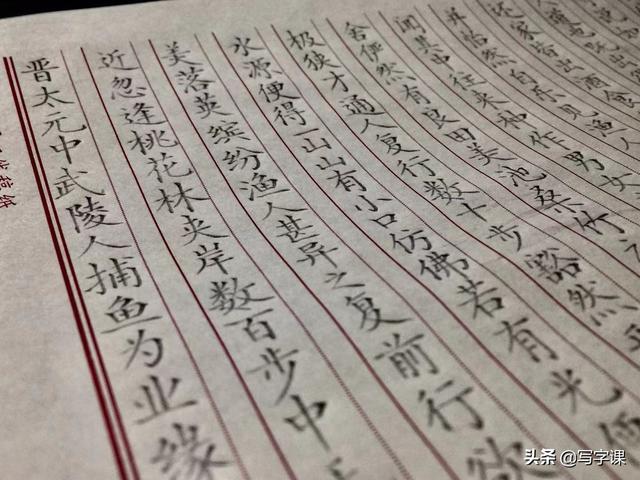 晋太元中武陵人捕鱼为业缘
近忽逢桃花林夹岸数百步中
美落英缤纷渔人甚异之复前行欲
水源便得一山山有小口仿佛若有光便
极狭才通人复行数十步豁然
舍俨然有良田美池桑竹
闻其中往来种作男女
并怡然自乐见渔人
家皆出酒食
头条 @写字课